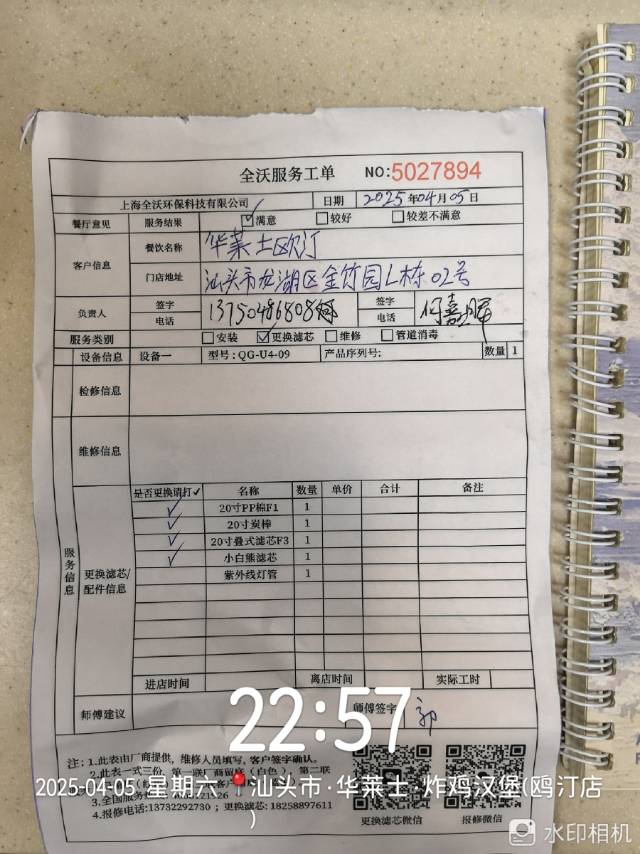 全沃服务工单 NO:5027894
上海全沃环保科技有限公司 日期 2025年04月05日
餐厅意见 服务结果 ☑满意 □较好 □较差不满意
客户信息 餐饮名称 华莱士欧汀
门店地址 汕头市龙湖区金竹园L栋02号
负责人 签字 电话 13750486808 签字 电话 何嘉晖
服务类别 □安装 ☑更换滤芯 □维修 □管道消毒
设备信息 设备一 型号:QG-U4-09 产品序列号: 数量 1
检修信息
维修信息
服务信息
更换滤芯/配件信息
是否更换请打✓ 名称 数量 单价 合计 备注
✓ 20寸PP棉F1 1
✓ 20寸炭棒 1
✓ 20寸叠式滤芯F3 1
✓ 小白熊滤芯 1
紫外线灯管 1
进店时间 离店时间 实际工时
师傅建议 师傅签字 郭
22:57
注:1.此表由厂商提供,维修人员填写,客户签字确认。
2.此表一式三份,第一联厂商留存(白色),第二联
2025-04-05 星期六 汕头市·华莱士·炸鸡汉堡(鸥汀店)
3.全国服务
4.报修电话:13732292730;更换滤芯:18258897611
更换滤芯微信 报修微信
水印相机